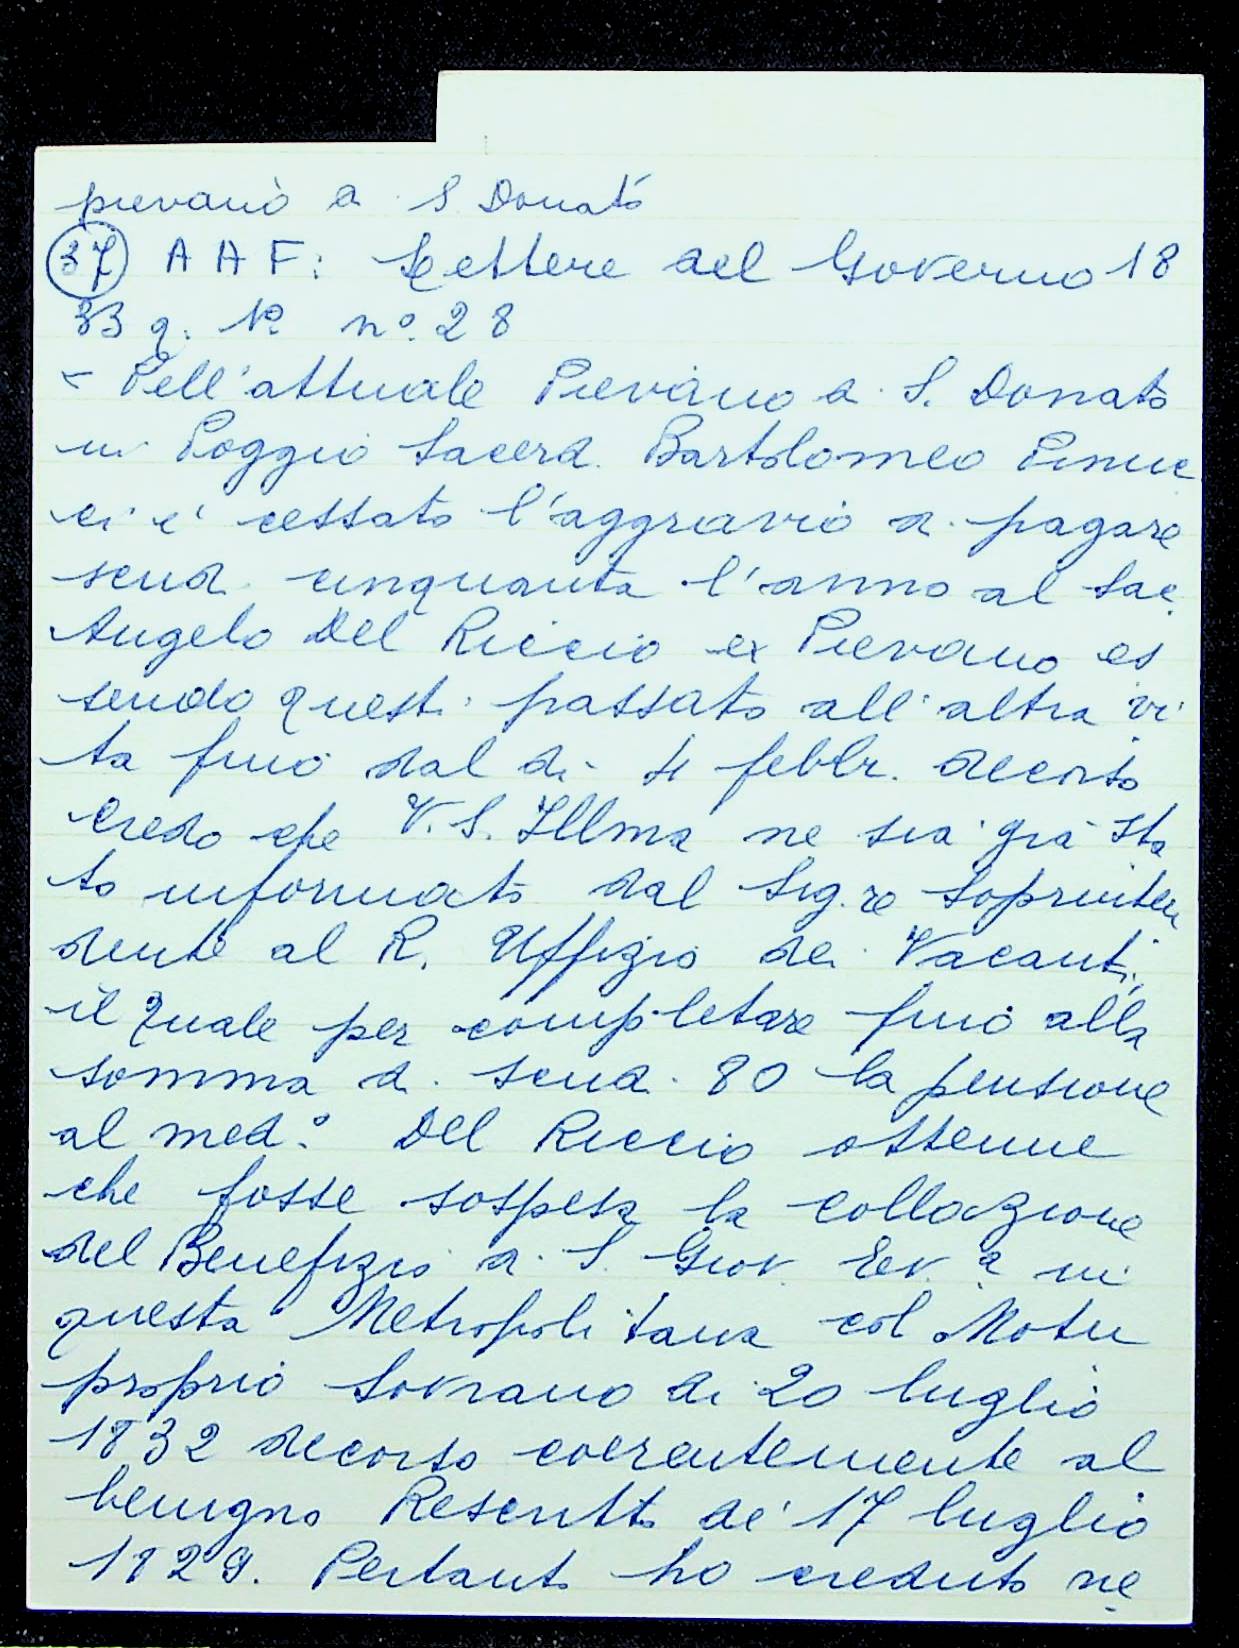 pievano a S. Donato
37 A A F: Lettere del Governo 18
33 q. 1º nº. 28
- Dell'attuale Pievano a S. Donato
in Poggio Sacerd. Bartolomeo Pinuc
ci è cessato l'aggravio di pagare
scudi cinquanta l'anno al Sac.
Angelo Del Riccio ex Pievano es
sendo questi passato all'altra vi
ta fino dal dì 4 febbr. decorso
Credo che V. S. Illma ne sia già sta
to informato dal Sig.re Soprinten
dente al R. Uffizio dei Vacanti,
il quale per completare fino alla
somma di scudi 80 la pensione
al med.º Del Riccio ottenne
che fosse sospesa la collazione
del Benefizio di S. Giov. Ev.ª in
questa Metropolitana col Motu
proprio Sovrano di 20 luglio
1832 decorso coerentemente al
benigno Rescritto de' 17 luglio
1829. Pertanto ho creduto ne